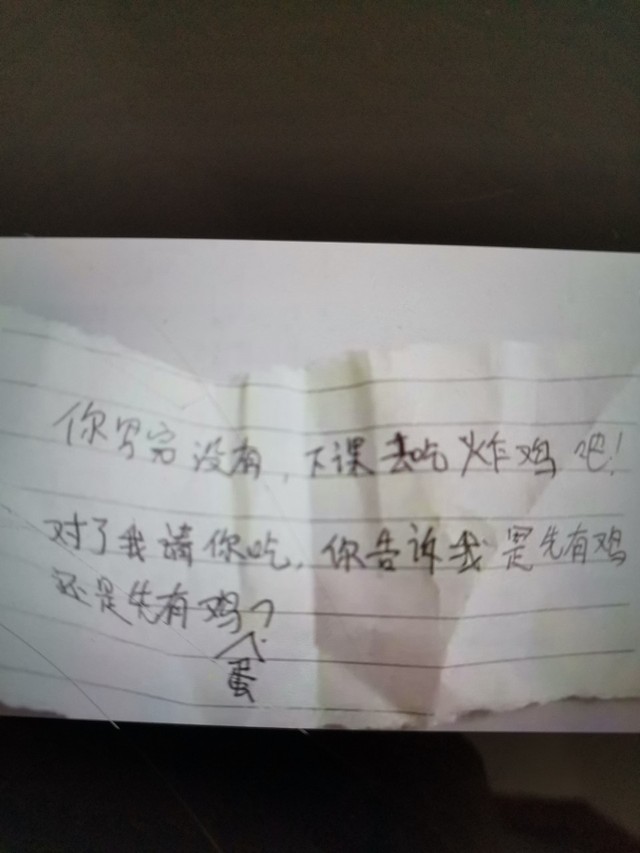 你写完没有，下课去吃炸鸡吧！
对了我请你吃，你告诉我是先有鸡
还是先有鸡蛋？